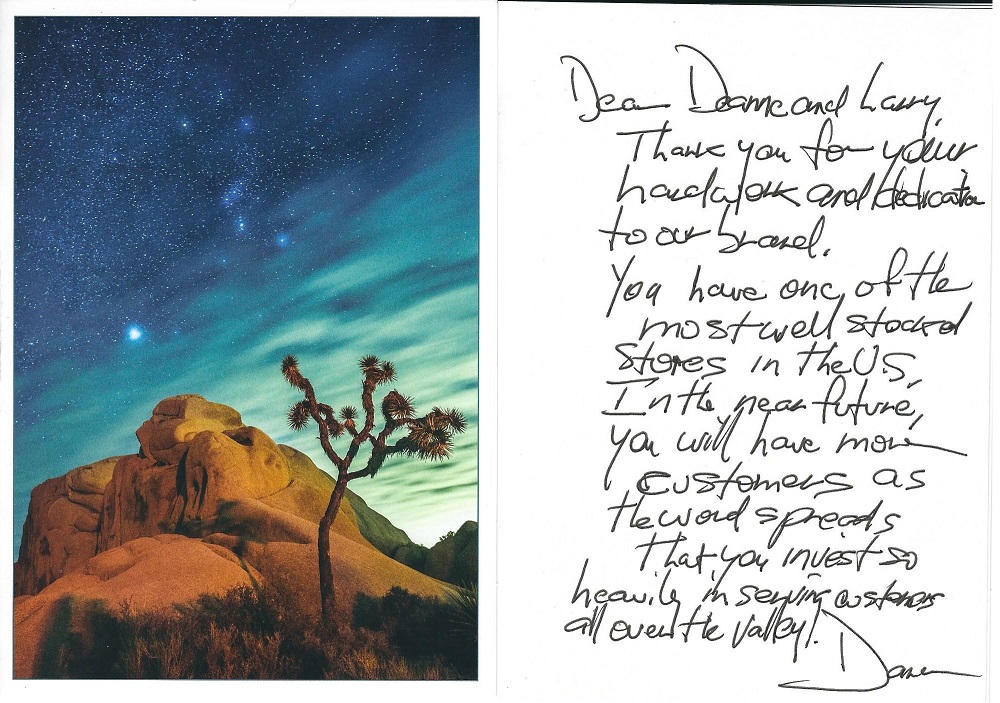 Dear Deanne and Larry,
Thank you for your
hardwork and dedication
to our brand.
You have one of the
most well stocked
stores in the U.S.
In the near future,
you will have more
customers as
the word spreads
that you invest so
heavily in serving customers
all over the Valley!